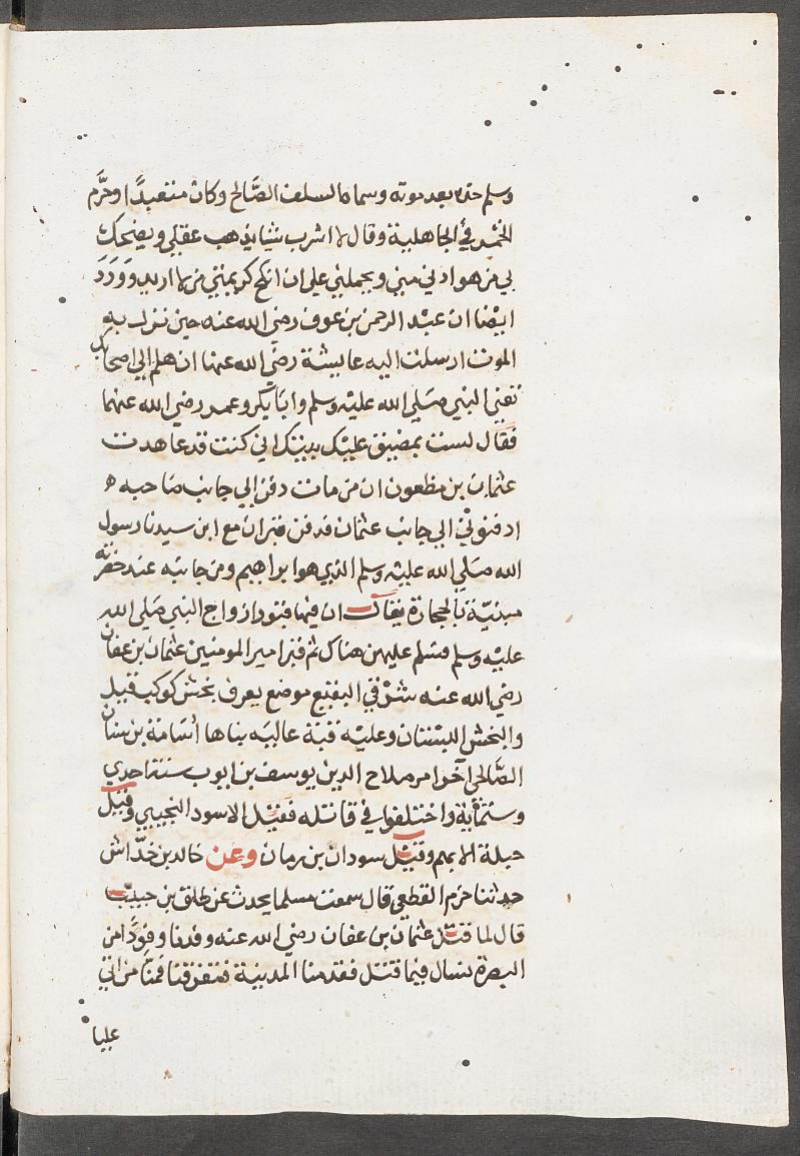 وسلم خده بعد موته وسماه السلف الصَّالح وكان متعبدًا وحرَّم
الخمر في الجاهلية وقال لا اشرب شيا يذهب عقلي ويضحك
بي من هو ادني مني ويحملني علي ان انكح كريمتي من لا اريد وَوَرَدَ
ايضا ان عبد الرحمن بن عوف رضي الله عنه حين نزل به
الموت ارسلت اليه عايشة رضي الله عنها ان هلم الي اصحابك
تعني النبي صَلي الله عليه وسلم وابَا بكر وعمر رضي الله عنهما
فقال لست بمضيق عليك بيتك اني كنت قد عاهدت
عثمان بن مظعون ان من مات دفن الي جانب صَاحبه ه
ادفنوني الي جانب عثمان قدفن فبران مع ابن سيدنا رسول
الله صَلي الله عليه وسلم الذي هو ابراهيم ومن جانبه عند حفرته
مبنيّة بالحجارة يقال ان فيها قبور ازواج النبي صَلي الله
عليه وسلم فسلم عليهن هناك ثم قبر امير المومنين عثمان بن عفان
رضي الله عنه شرْقي البقيع موضع يعرف بخش كوكب قبيل
والخش البستان وعليْه قبة عاليَه بناها أسَامة بن سنان
الصَّالحي آخوامر صلاح الدين يوسف بن ايوب سنة احدي
وستمأية واختلفوا في قاتله فقيْل الاسود التجيبي وقيْل
جبلة الايهم وقيْل سودان بن رمان وعن خالد بن خدّاش
حدثنا حزم القطعي قال سمعت مسلما يحدث عن طلق بن حبيب
قال لما قتل عثمان بن عفان رضي الله عنه وفدنا وفودًا من
البصرة نسال فيما قتل فقدمنا المدينة فتفرقنا فمنّا من اتي
عليا